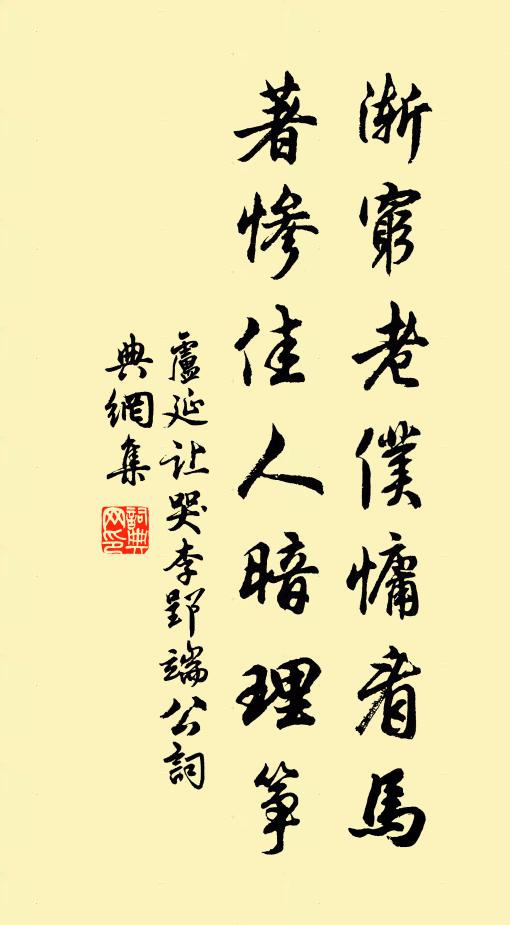 漸窮老僕慵看馬
著慘佳人暗理箏
盧延让哭李郢端公詞
典網集
詞典
网印